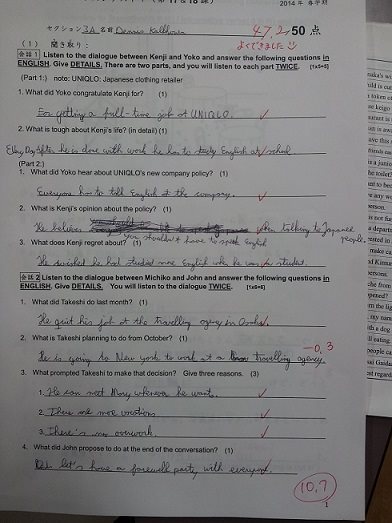 2014 年 春学期
セクション 3A 名前
47.2 50 点
よくできました
( 1 ) 聞き取り:
会話 1 Listen to the dialogue between Kenji and Yoko and answer the following questions in
ENGLISH. Give DETAILS. There are two parts, and you will listen to each part TWICE. [1x5=5]
(Part 1:) note: UNIQLO: Japanese clothing retailer
1. What did Yoko congratulate Kenji for? (1)
For getting a full-time job at UNIQLO.
2. What is tough about Kenji's life? (in detail) (1)
Every Day after he is done with work he has to study English at school
(Part 2:)
1. What did Yoko hear about UNIQLO's new company policy? (1)
Everyone has to talk English at the company.
2. What is Kenji's opinion about the policy? (1)
He believes you shouldn't have to speak English when talking to Japanese people.
3. What does Kenji regret about? (1)
He wished he had studied more English when he was a student.
会話 2 Listen to the dialogue between Michiko and John and answer the following questions in
ENGLISH. Give DETAILS. You will listen to the dialogue TWICE. [1x6=6]
1. What did Takeshi do last month? (1)
He quit his job at the travelling agency in Osaka.
2. What is Takeshi planning to do from October? (1)
-0.3
He is going to New York to work at a travelling agency.
3. What prompted Takeshi to make that decision? Give three reasons. (3)
1. He can meet Mary whenever he want.
2. There are more vacations
3. There's no overwork.
4. What did John propose to do at the end of the conversation? (1)
let's have a farewell party with everyone.
10.7
1